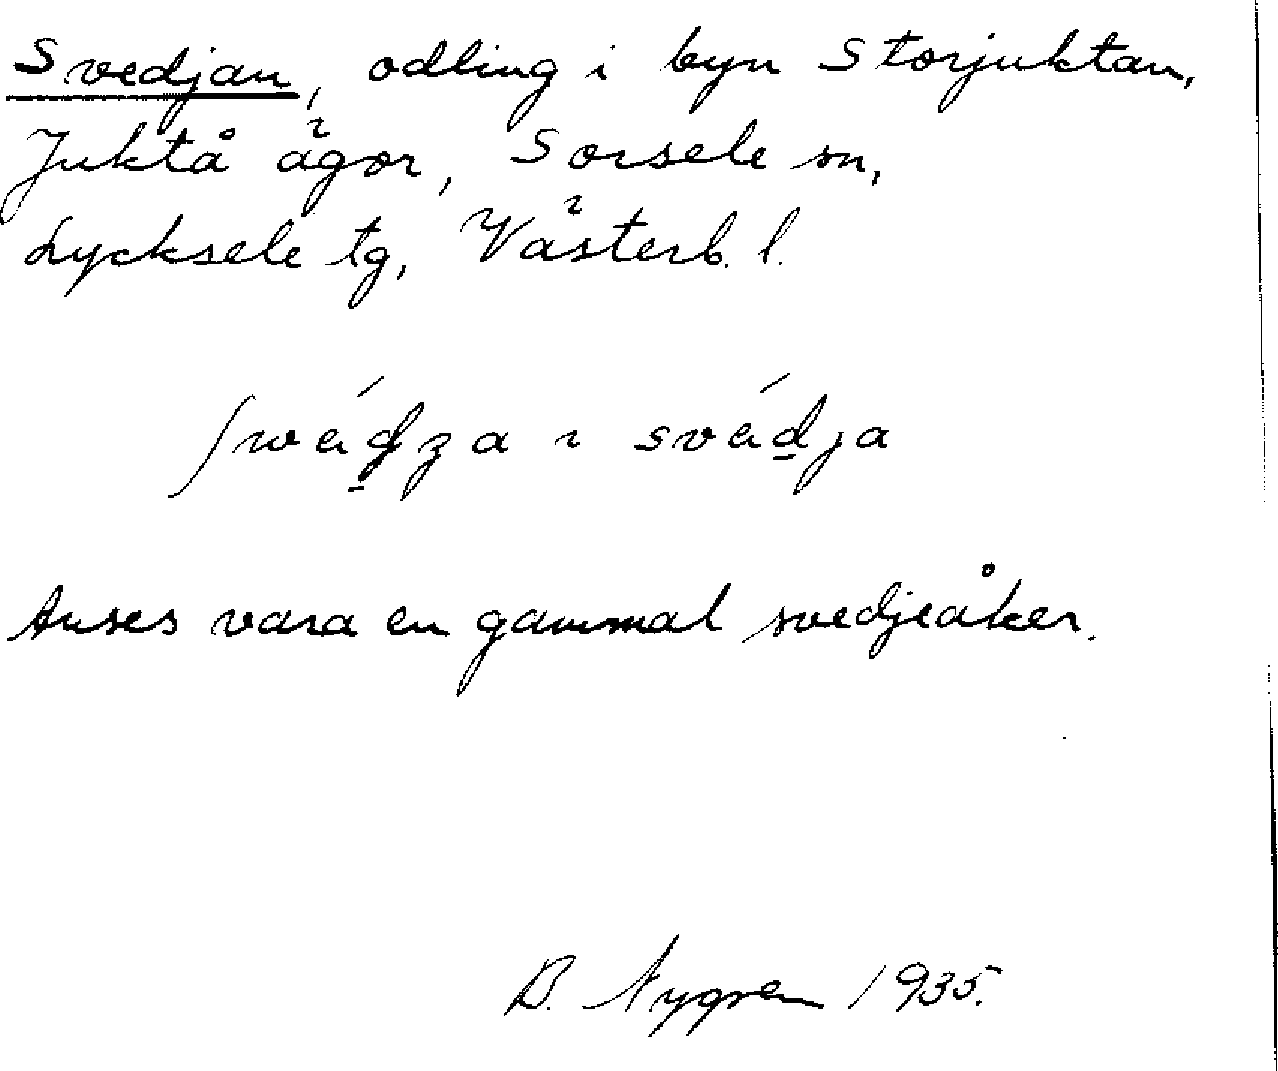 Svedjan, odling i byn Storjuktan,
Juktå ägor, Sorsele sn,
Lycksele tg, Västerb. l.
ʃwéḏʒa ~ svéḏja
Anses vara en gammal svedjeåker.
B. Nygren 1935.